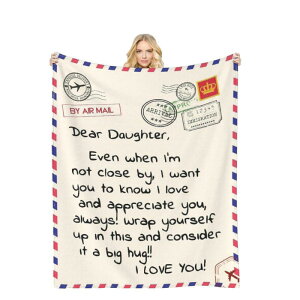 BY AIR MAIL
ARRIVED
IMMIGRATION
Dear Daughter,
Even when i'm
not close by, i want
you to know i love
and appreciate you,
always! wrap yourself
up in this and consider
it a big hug!!
I LOVE YOU!